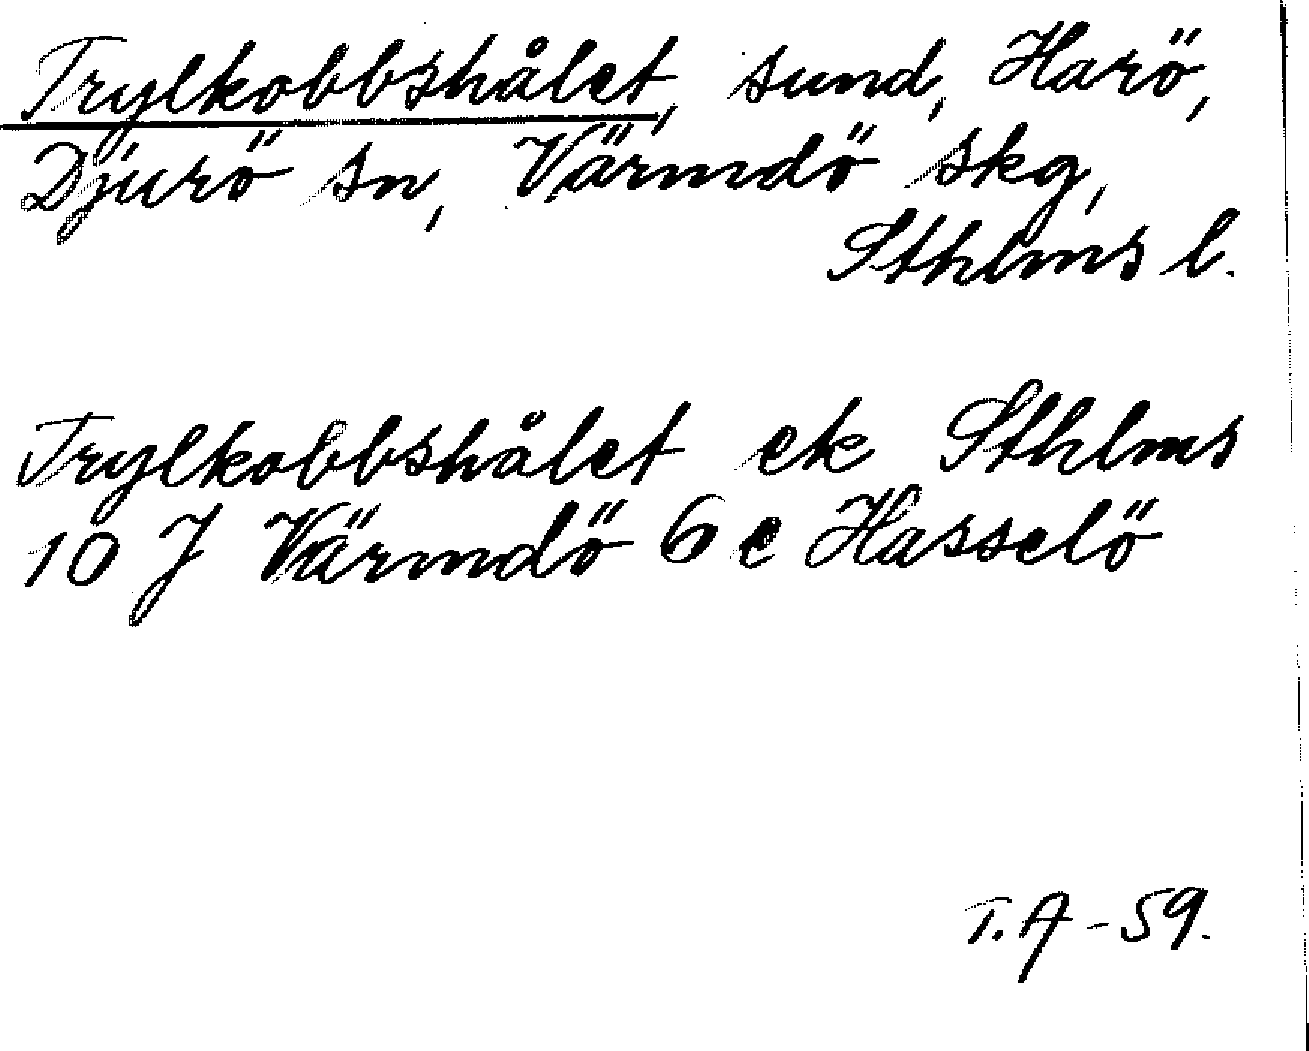 Trylkobbshålet, sund, Harö,
Djurö sn, Värmdö skg,
Sthlms l.
Trylkobbshålet ek Sthlms
10 J Värmdö 6 e Hasselö
T.A - 59.